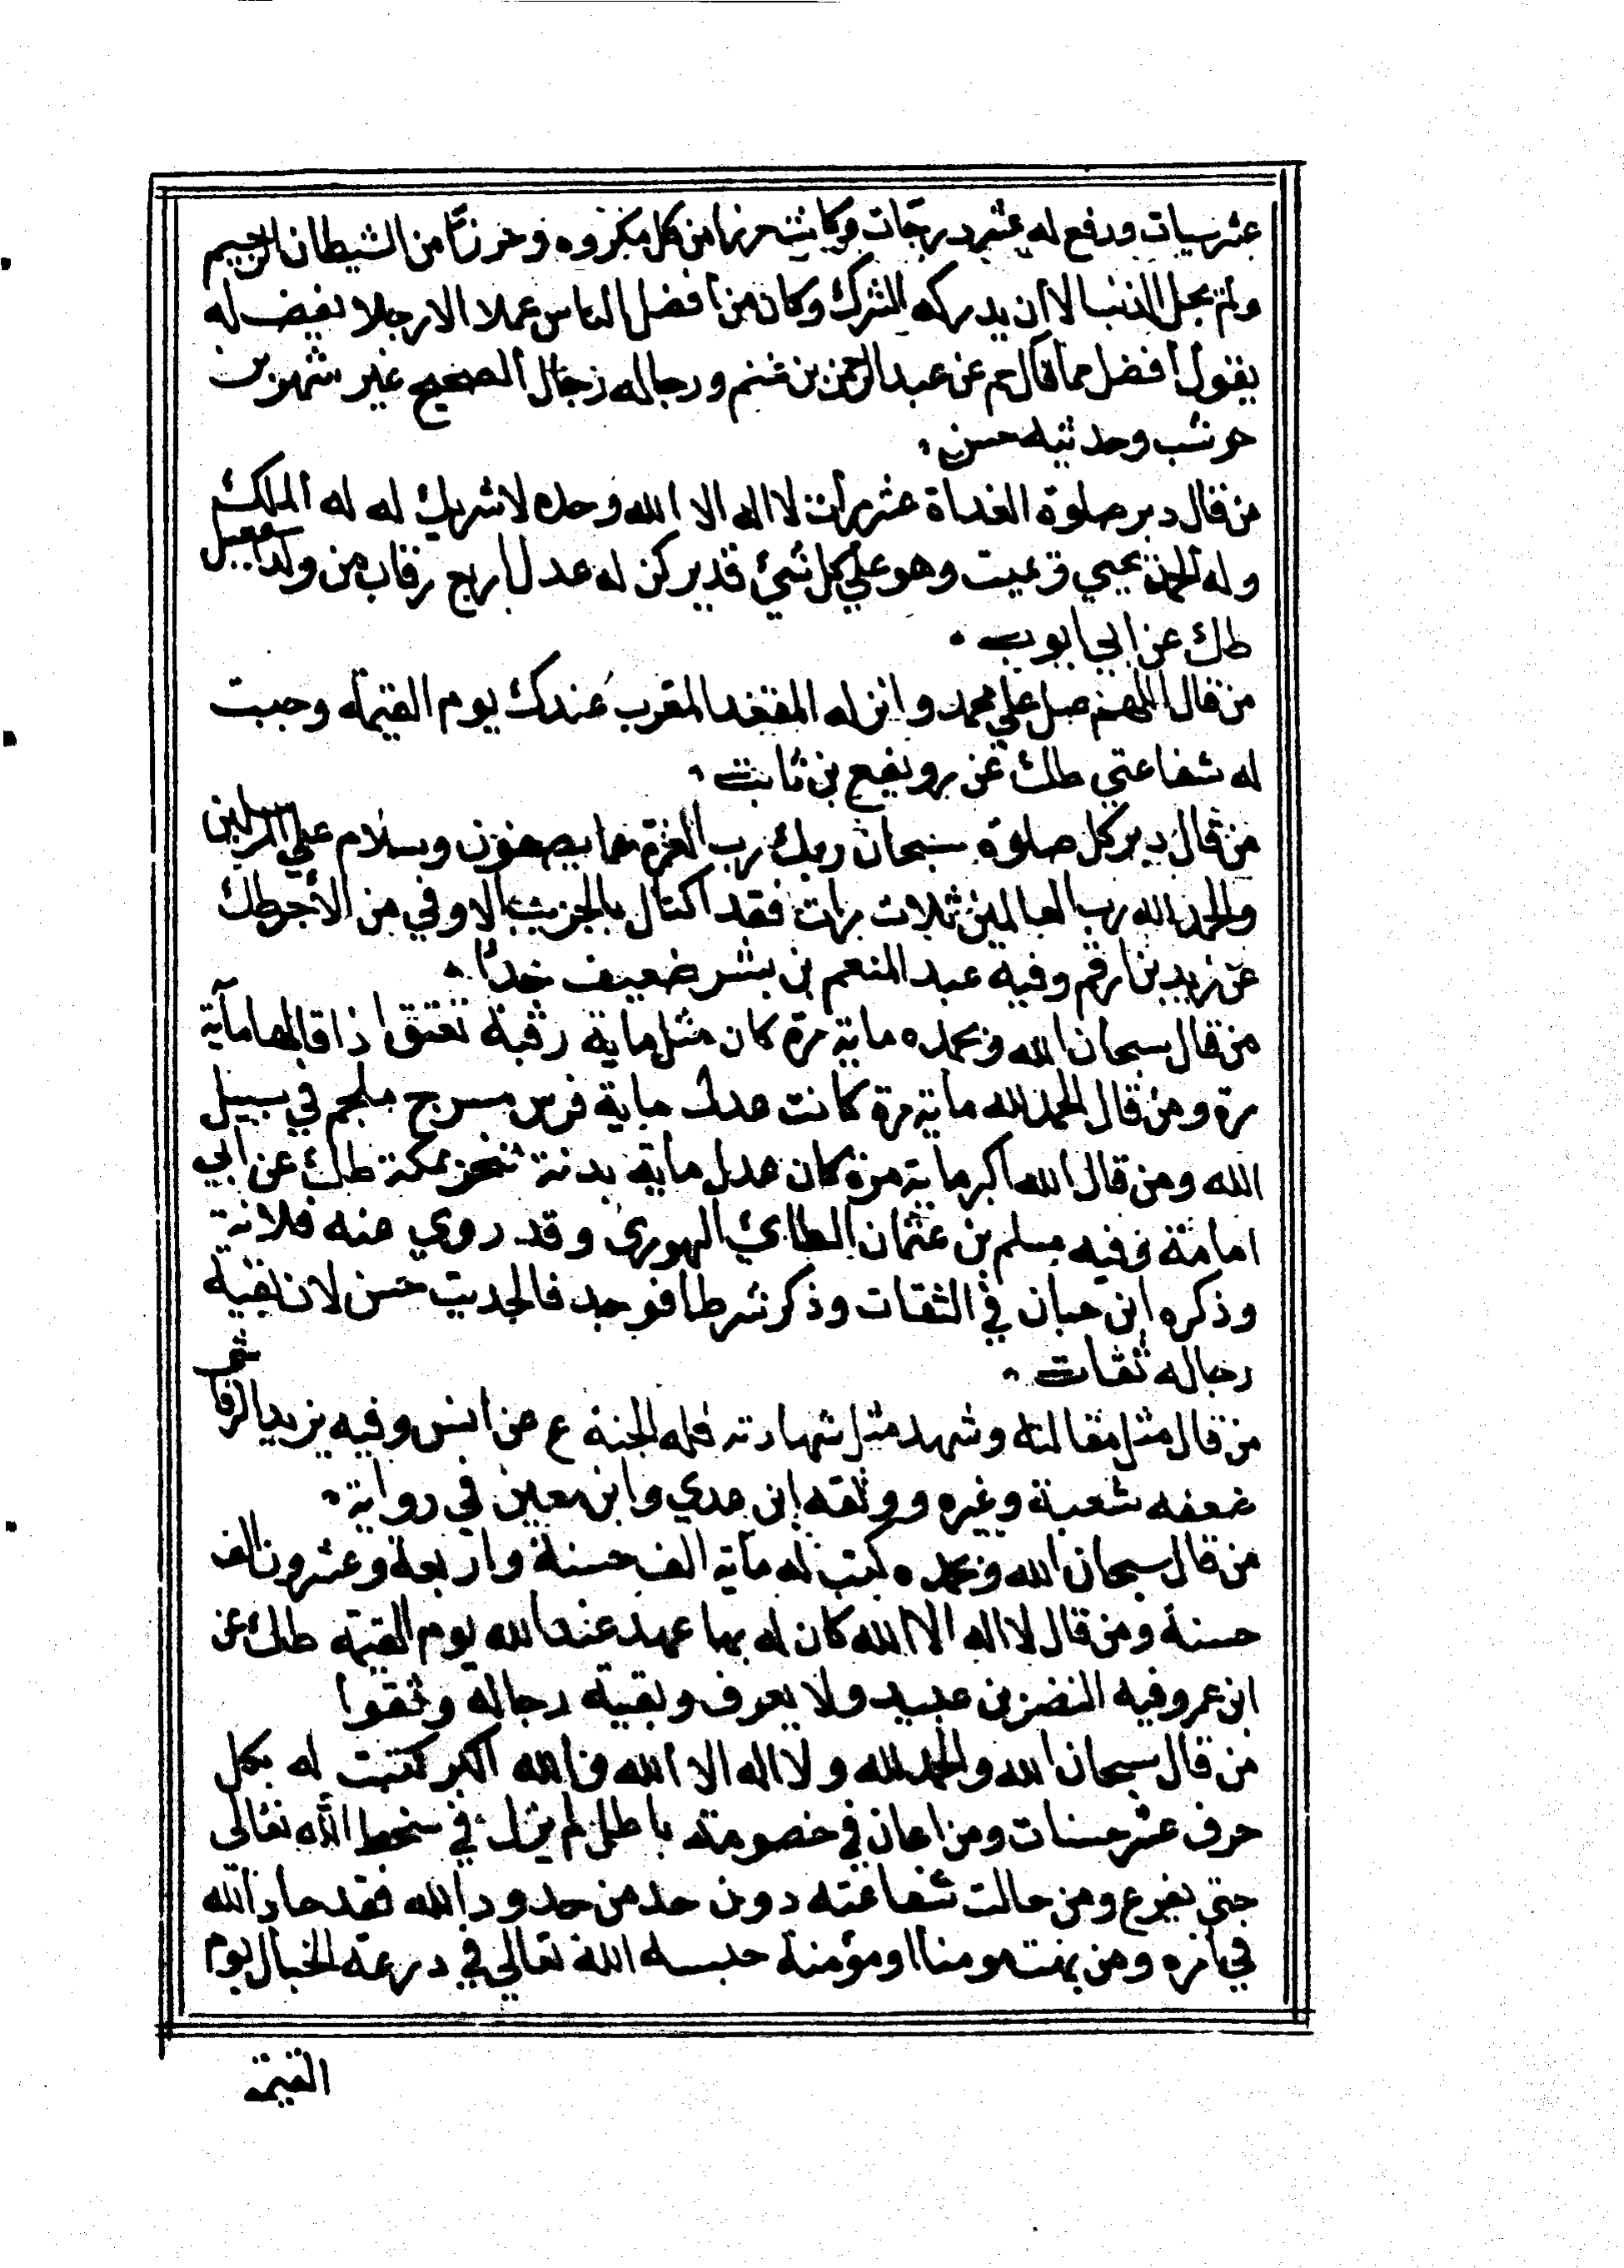 عشر سيات ورفع له عشر درجات وكانت حرزا من كل مكروه وحرزا من الشيطان الرجيم
ولم يحل لذنب الا ان يدركه الشرك وكان من أفضل الناس عملا الا رجلا يفضله
يقول أفضل مما قال حم عن عبد الرحمن بن غنم ورجاله رجال الصحيح غير شهر بن
حوشب وحديثه حسن
من قال دبر صلوة الغداة عشر مرات لا اله الا الله وحده لا شريك له له الملك
وله الحمد يحيي ويميت وهو علي كل شئ قدير كن له عدل اربع رقاب من ولد اسمعيل
طك عن ابي ايوب
من قال اللهم صل علي محمد وانزله المقعد المقرب عندك يوم القيمة وجبت
له شفاعتي طك عن رويفع بن ثابت
من قال دبر كل صلوة سبحان ربك رب العزة عما يصفون وسلام علي المرسلين
والحمد لله رب العالمين ثلاث مرات فقد اكتال بالجريب الاوفي من الأجر طك
عن زيد بن ارقم وفيه عبد المنعم بن بشر ضعيف جدا
من قال سبحان الله وبحمده ماية مرة كان مثل ماية رقبة تعتق اذا قالها مآية
مرة ومن قال الحمد لله ماية مرة كانت عدل ماية فرس مسرج ملجم في سبيل
الله ومن قال الله اكبر ماية مرة كان عدل ماية بدنة تنحر بمكة طك عن ابي
امامة وفيه مسلم بن عثمان الطائ الهوري وقد روي عنه فلانة
وذكره ابن حبان في الثقات وذكر شرطا فوجد فالحديث حسن لان بقية
رجاله ثقات
من قال مثل مقالته وشهد مثل شهادته فله الجنة ع عن انس وفيه يزيد الرقاشي
ضعفه شعبة وغيره ووثقه ابن عدي وابن معين في رواية
من قال سبحان الله وبحمده كتب له ماية الف حسنة واربعة وعشرون الف
حسنة ومن قال لا اله الا الله كان له بها عهد عند الله يوم القيمة طك عن
ابن عمر وفيه النضر بن عبيد ولا يعرف وبقية رجاله وثقوا
من قال سبحان الله والحمد لله ولا اله الا الله والله اكبر كتبت له بكل
حرف عشر حسنات ومن اعان في خصومته باطل لم يزل في سخط الله تعالى
حتي يفرغ ومن حالت شفاعته دون حد من حدود الله فقد حاد الله
في امره ومن بهت مومنا او مؤمنة حبسه الله تعالي في درعة الخبال يوم
القيمة